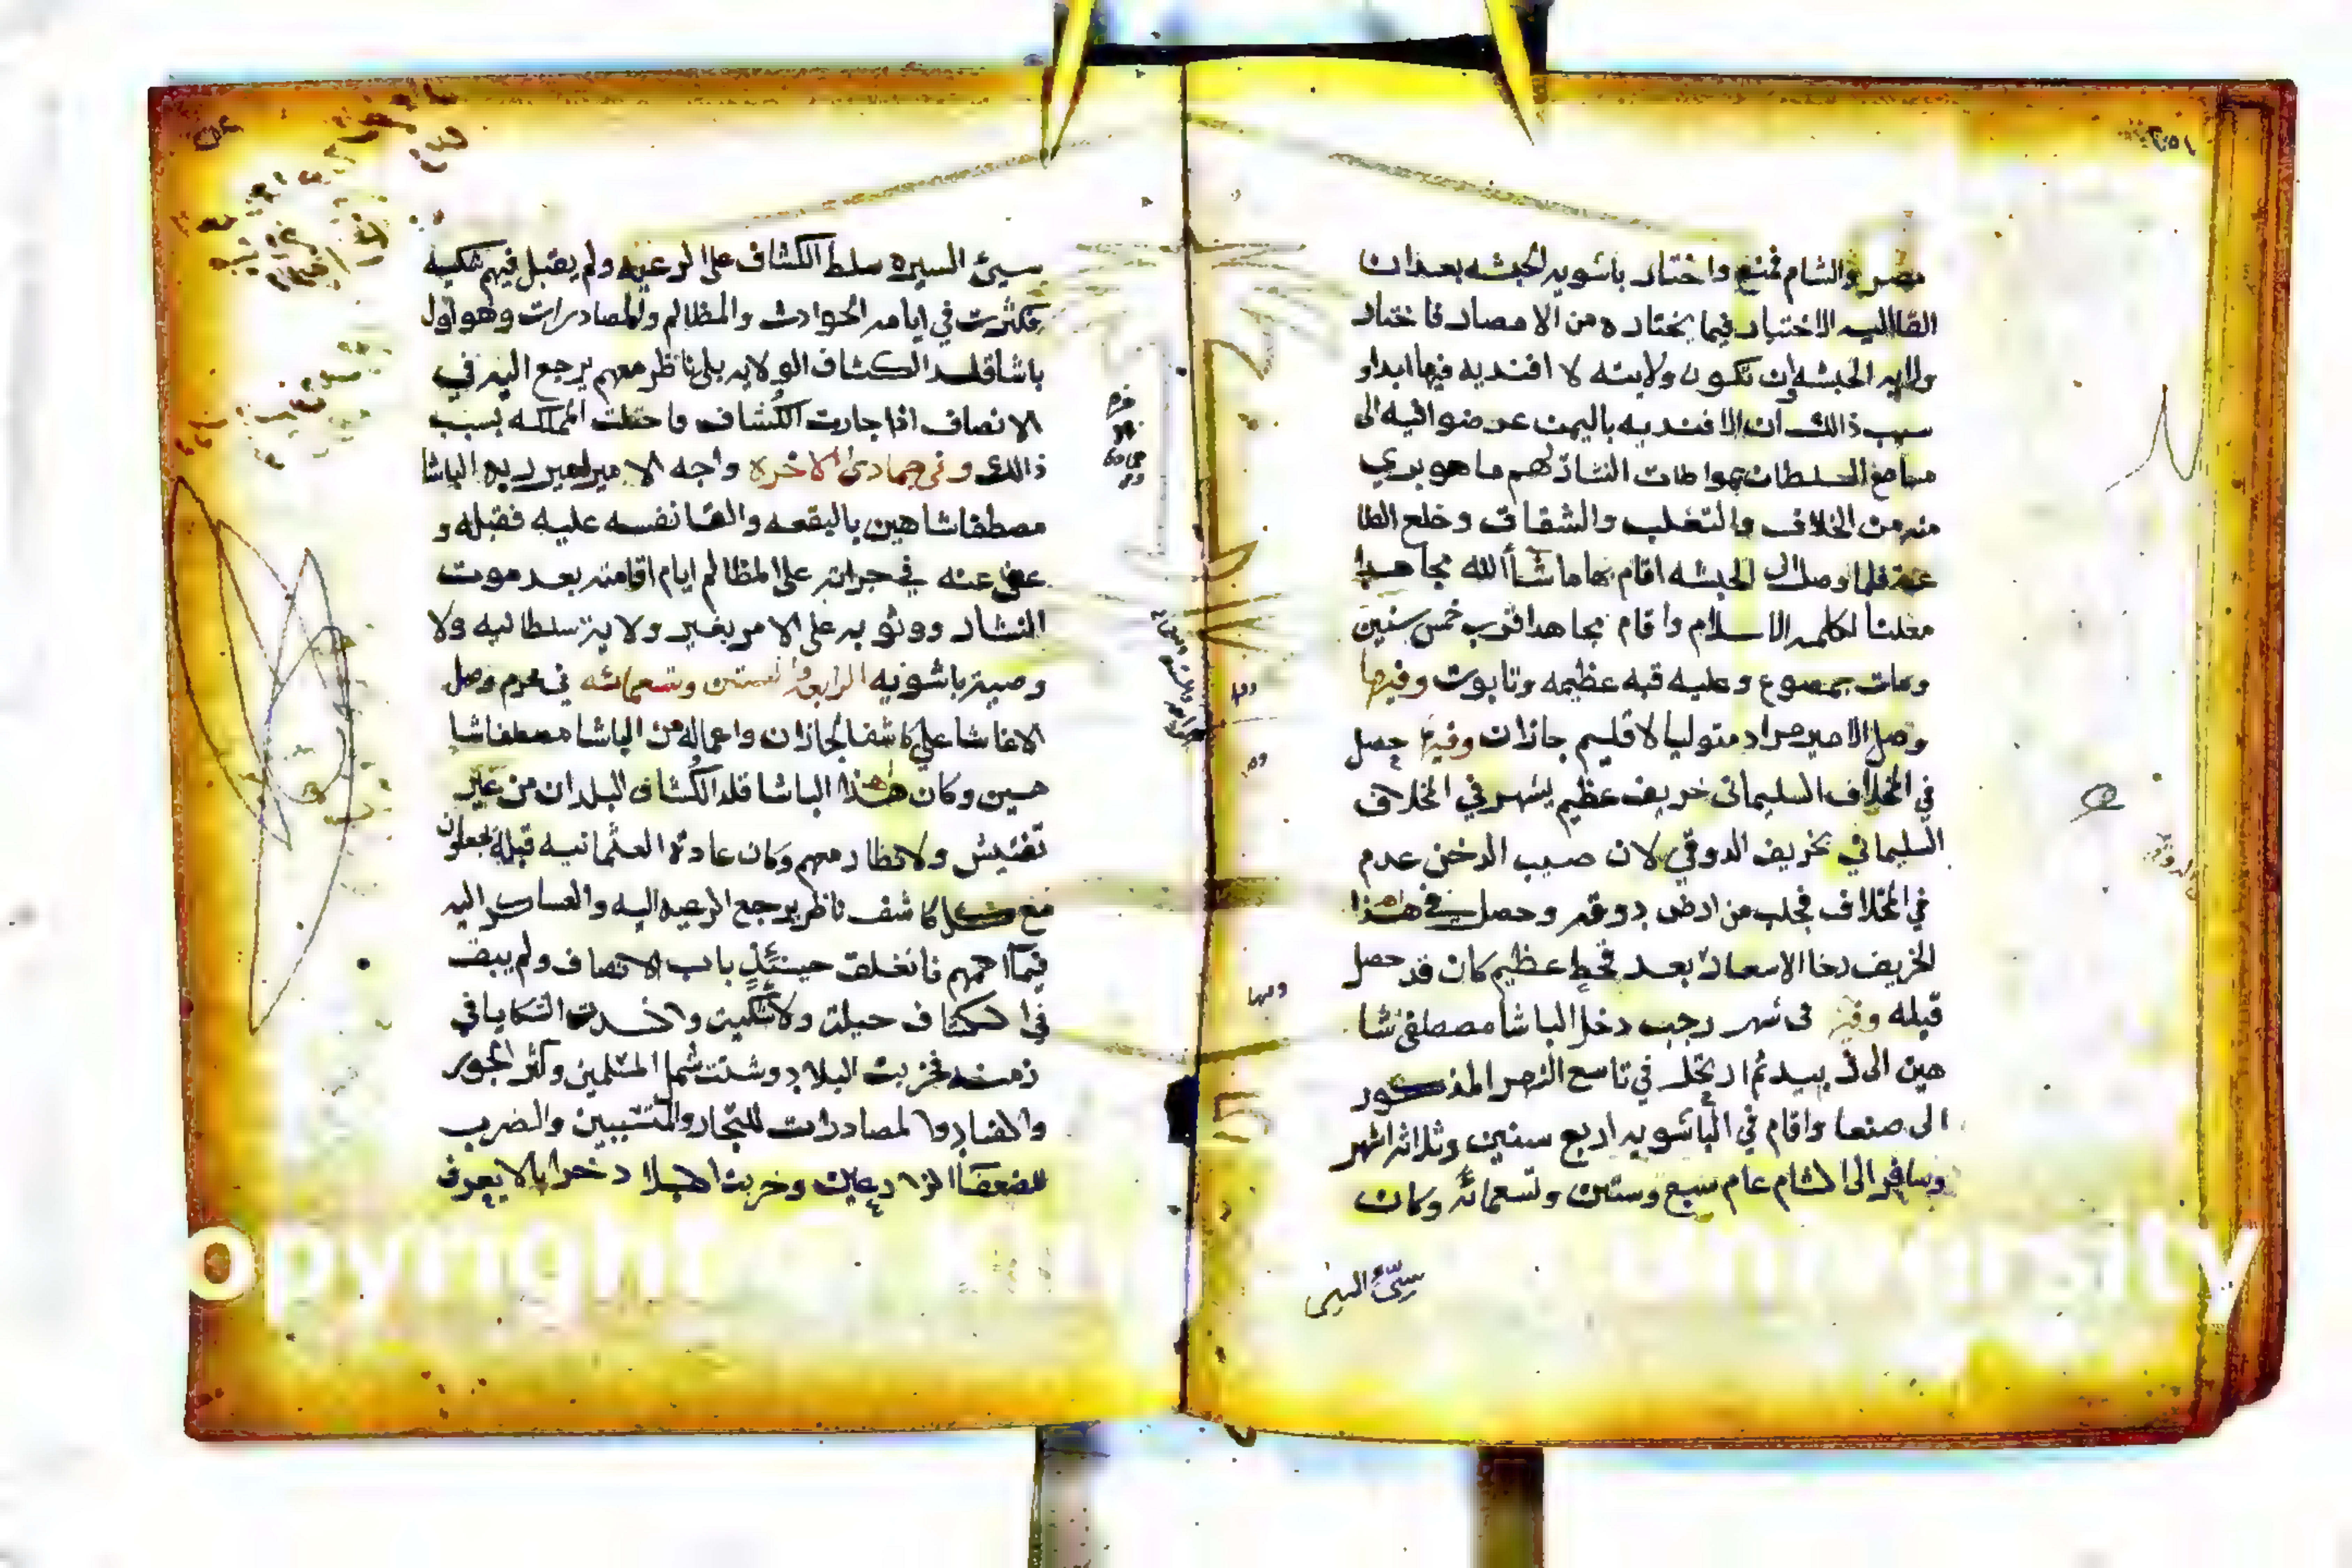 مصر والشام فمنع واختار باشويه الحبشه بعد ان
القا اليه الاختيار فيما يختاره من الامصار فاختار
ولايه الحبشه وان تكون ولايته لا افنديه فيها ابدا و
سبب ذالك ان الافنديه باليمن عرضوا فيه الى
مسامع السلطان بمواطات النشار لهم ما هو بري
منه من الخلاف والتغلب والشقاق وخلع الطا
عه فلما وصل الى الحبشه اقام بها ما شأ الله مجاهدا
معلنا لكلمه الاسلام واقام مجاهدا قرب خمس سنين
ومات بمصوع وعليه قبه عظيمه وتابوت وفيها
وصل الامير مراد متوليا لاقليم جازان وفيها حصل
في المخلاف السليماني خريف عظيم يشهر في المخلاف
السليماني بخريف الدوقي لان صبيب الدخن عدم
في المخلاف فجلب من ارض دوقه وحصل في هذا
الخريف رخا الاسعار بعد قحط عظيم كان قد حصل
قبله وفي شهر رجب دخل الباشا مصطفى شا
هين الى زبيد ثم ارتحل في تاسع الشهر المذكور
الى صنعا واقام في الباشويه اربع سنين وثلاثه اشهر
وسافر الى الشام عام سبع وستين وتسعمائه وكان
سيّئ السير
سيئ السيره سلط الكشاف على الرعيه ولم يقبل فيهم شكيه
فكثرت في ايامه الحوادث والمظالم والمصادرات وهو اول
باشا قلد الكشاف الولايه بلى ناظر معهم يرجع اليه في
الانصاف اذا جارت الكشاف فاختلت المملكه بسبب
ذالك وفي جمادى الاخره واجه الامير الباشا
مصطفا شاهين بالبقعه والقا نفسه عليه فقبله و
عفى عنه في جراته على المظالم ايام اقامته بعد موت
النشار ووثوبه على الامر بغير ولايه سلطانيه ولا
وصيه باشويه الرابعه وستين وتسعمائه في محرم وصل
الاغا شا علي كاشفا لجازان واعماله من الباشا مصطفا شا
هين وكان هذا الباشا قلد الكشاف البلدان من غير
تفتيش ولا نظار معهم وكان عادة العثمانيه قبله يجعلون
مع كل كاشف ناظر يرجع الرعيه اليه والعساكر اليه
فيما اهمهم فانغلق حينئذ باب الانصاف ولم يبق
في الكشاف حيله ولا شكيه الشكايا في
زمنه فخربت البلاد وشتت شمل المسلمين وكثر الجور
والفساد والمصادرات للتجار والمتسببين والضرب
للضعفا المزارعين وخربت خرابا لا يعرف